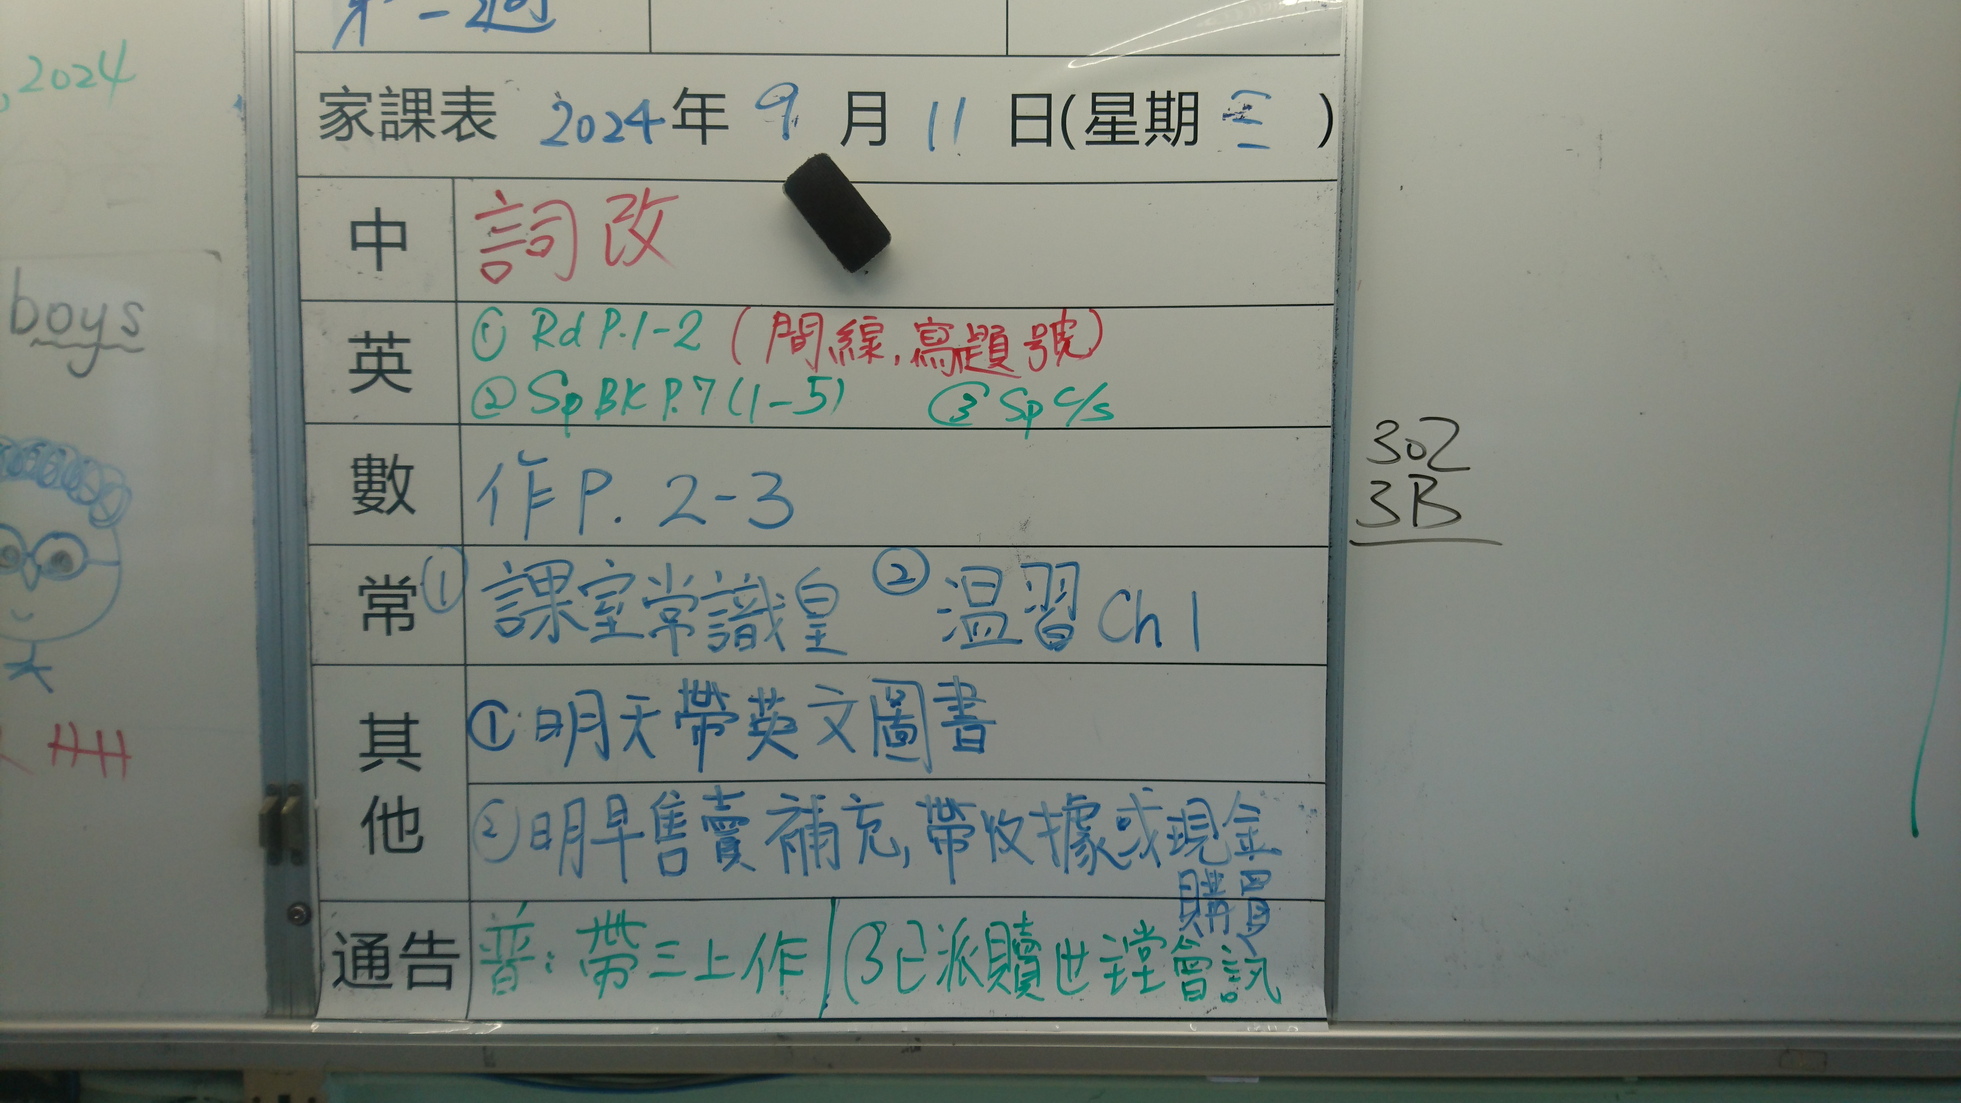 第一週
,2024
家課表 2024年 9 月 11 日(星期 三 )
中 詞改
boys
英 ① Rd P.1-2 (間線,寫題號)
② Sp BK P.7 (1-5) ③ Sp c/s
數 作P. 2-3
302
3B
常 ① 課室常識皇 ② 温習 Ch 1
其他 ①:明天帶英文圖書
② 明早售賣補充,帶收據或現金
購買
通告 普:帶三上作 / (3)已派贖世主堂會訊